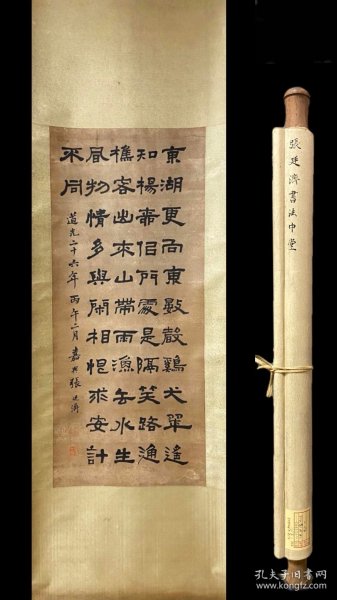 東湖更向東數聲鷄犬翠遙
知楊帝侶門處是隔笑路通
樵客出來山帶雨漁缶水生
風物情多與閑相悒求安計
不同
道光二十六年 丙午二月 嘉興張廷濟
張廷濟書法中堂
孔夫子旧书网
www.kongfz.com